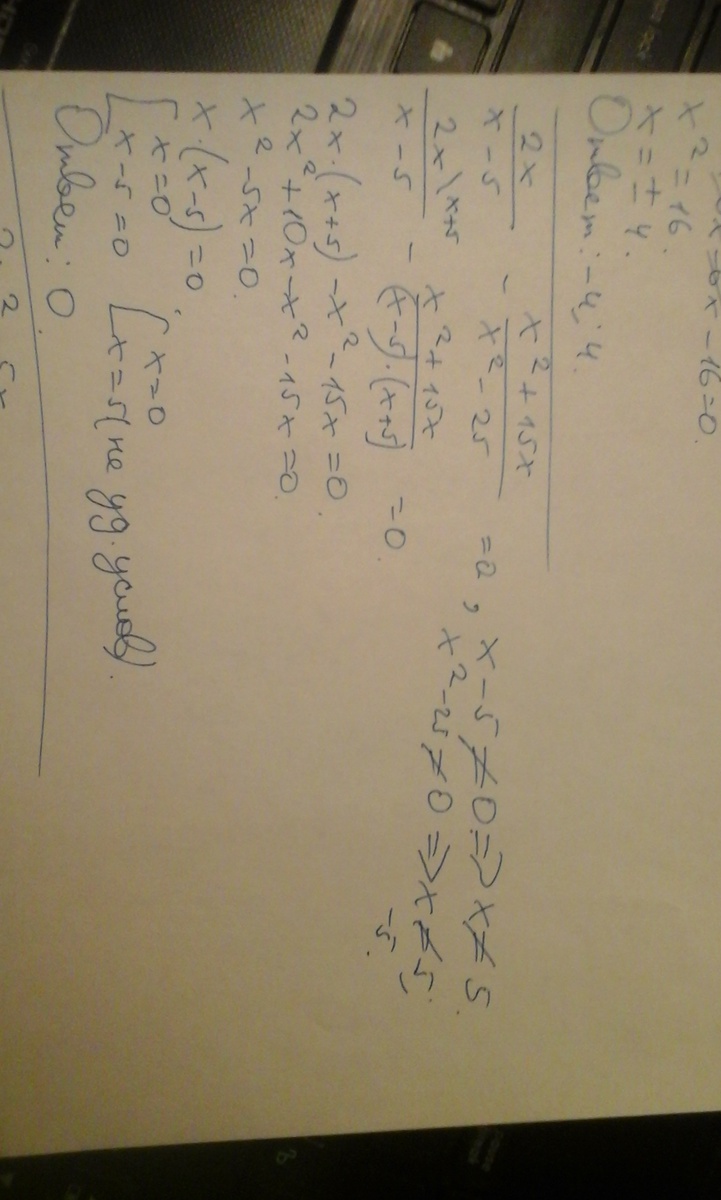 x = 6x - 16 = 0
x² = 16.
x = ± 4.
Ответ: -4; 4.
2x/(x-5) - (x² + 15x)/(x² - 25) = 0, x - 5 ≠ 0 => x ≠ 5.
x² - 25 ≠ 0 => x ≠ 5; -5.
2x\x+5/(x-5) - (x² + 15x)/((x-5)·(x+5)) = 0.
2x·(x+5) - x² - 15x = 0.
2x² + 10x - x² - 15x = 0.
x² - 5x = 0.
x·(x-5) = 0
[x = 0 [x = 0
x - 5 = 0 x = 5 (не уд. услов).
Ответ: 0.